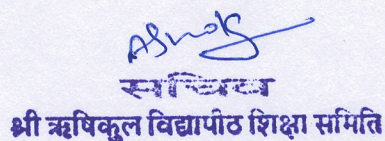 Ashok
सचिव
श्री ऋषिकुल विद्यापीठ शिक्षा समिति